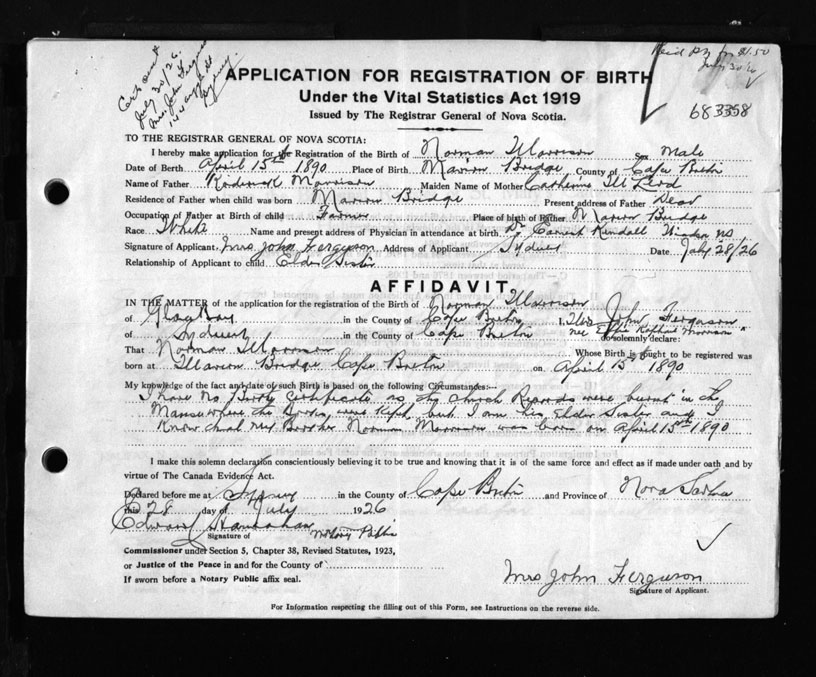 Cert sent
July 30/26.
Mrs. John Ferguson
144
Sydney.
Paid by for $1.50
July 30/26
APPLICATION FOR REGISTRATION OF BIRTH
Under the Vital Statistics Act 1919
Issued by The Registrar General of Nova Scotia.
683358
TO THE REGISTRAR GENERAL OF NOVA SCOTIA:
I hereby make application for the Registration of the Birth of Norman Morrison sex Male
Date of Birth April 15th 1890 Place of Birth Marion Bridge County of Cape Breton
Name of Father Roderick Morrison Maiden Name of Mother Catherine McLeod
Residence of Father when child was born Marion Bridge Present address of Father Dead
Occupation of Father at Birth of child Farmer Place of birth of Father Marion Bridge
Race White Name and present address of Physician in attendance at birth Dr Kendall Windsor NS
Signature of Applicant, Mrs John Ferguson Address of Applicant Sydney Date July 28/26
Relationship of Applicant to child Elder Sister
AFFIDAVIT.
IN THE MATTER of the application for the registration of the Birth of Norman Morrison
of Glace Bay in the County of Cape Breton I, Mrs John Ferguson
of Sydney in the County of Cape Breton nee Effie Morrison do solemnly declare:
That Norman Morrison Whose Birth is sought to be registered was
born at Marion Bridge Cape Breton on April 15th 1890
My knowledge of the fact and date of such Birth is based on the following Circumstances:—
I have no Birth Certificate as the Church Records were burnt in the
Manse where the Books were kept but I am his Elder Sister and I
Know that my Brother Norman Morrison was born on April 15th 1890
I make this solemn declaration conscientiously believing it to be true and knowing that it is of the same force and effect as if made under oath and by
virtue of The Canada Evidence Act.
Declared before me at Sydney in the County of Cape Breton and Province of Nova Scotia
this 28 day of July 1926
Edward Hannahan
Signature of Notary Public
Commissioner under Section 5, Chapter 38, Revised Statutes, 1923,
or Justice of the Peace in and for the County of
If sworn before a Notary Public affix seal.
Mrs John Ferguson
Signature of Applicant.
For Information respecting the filling out of this Form, see Instructions on the reverse side.